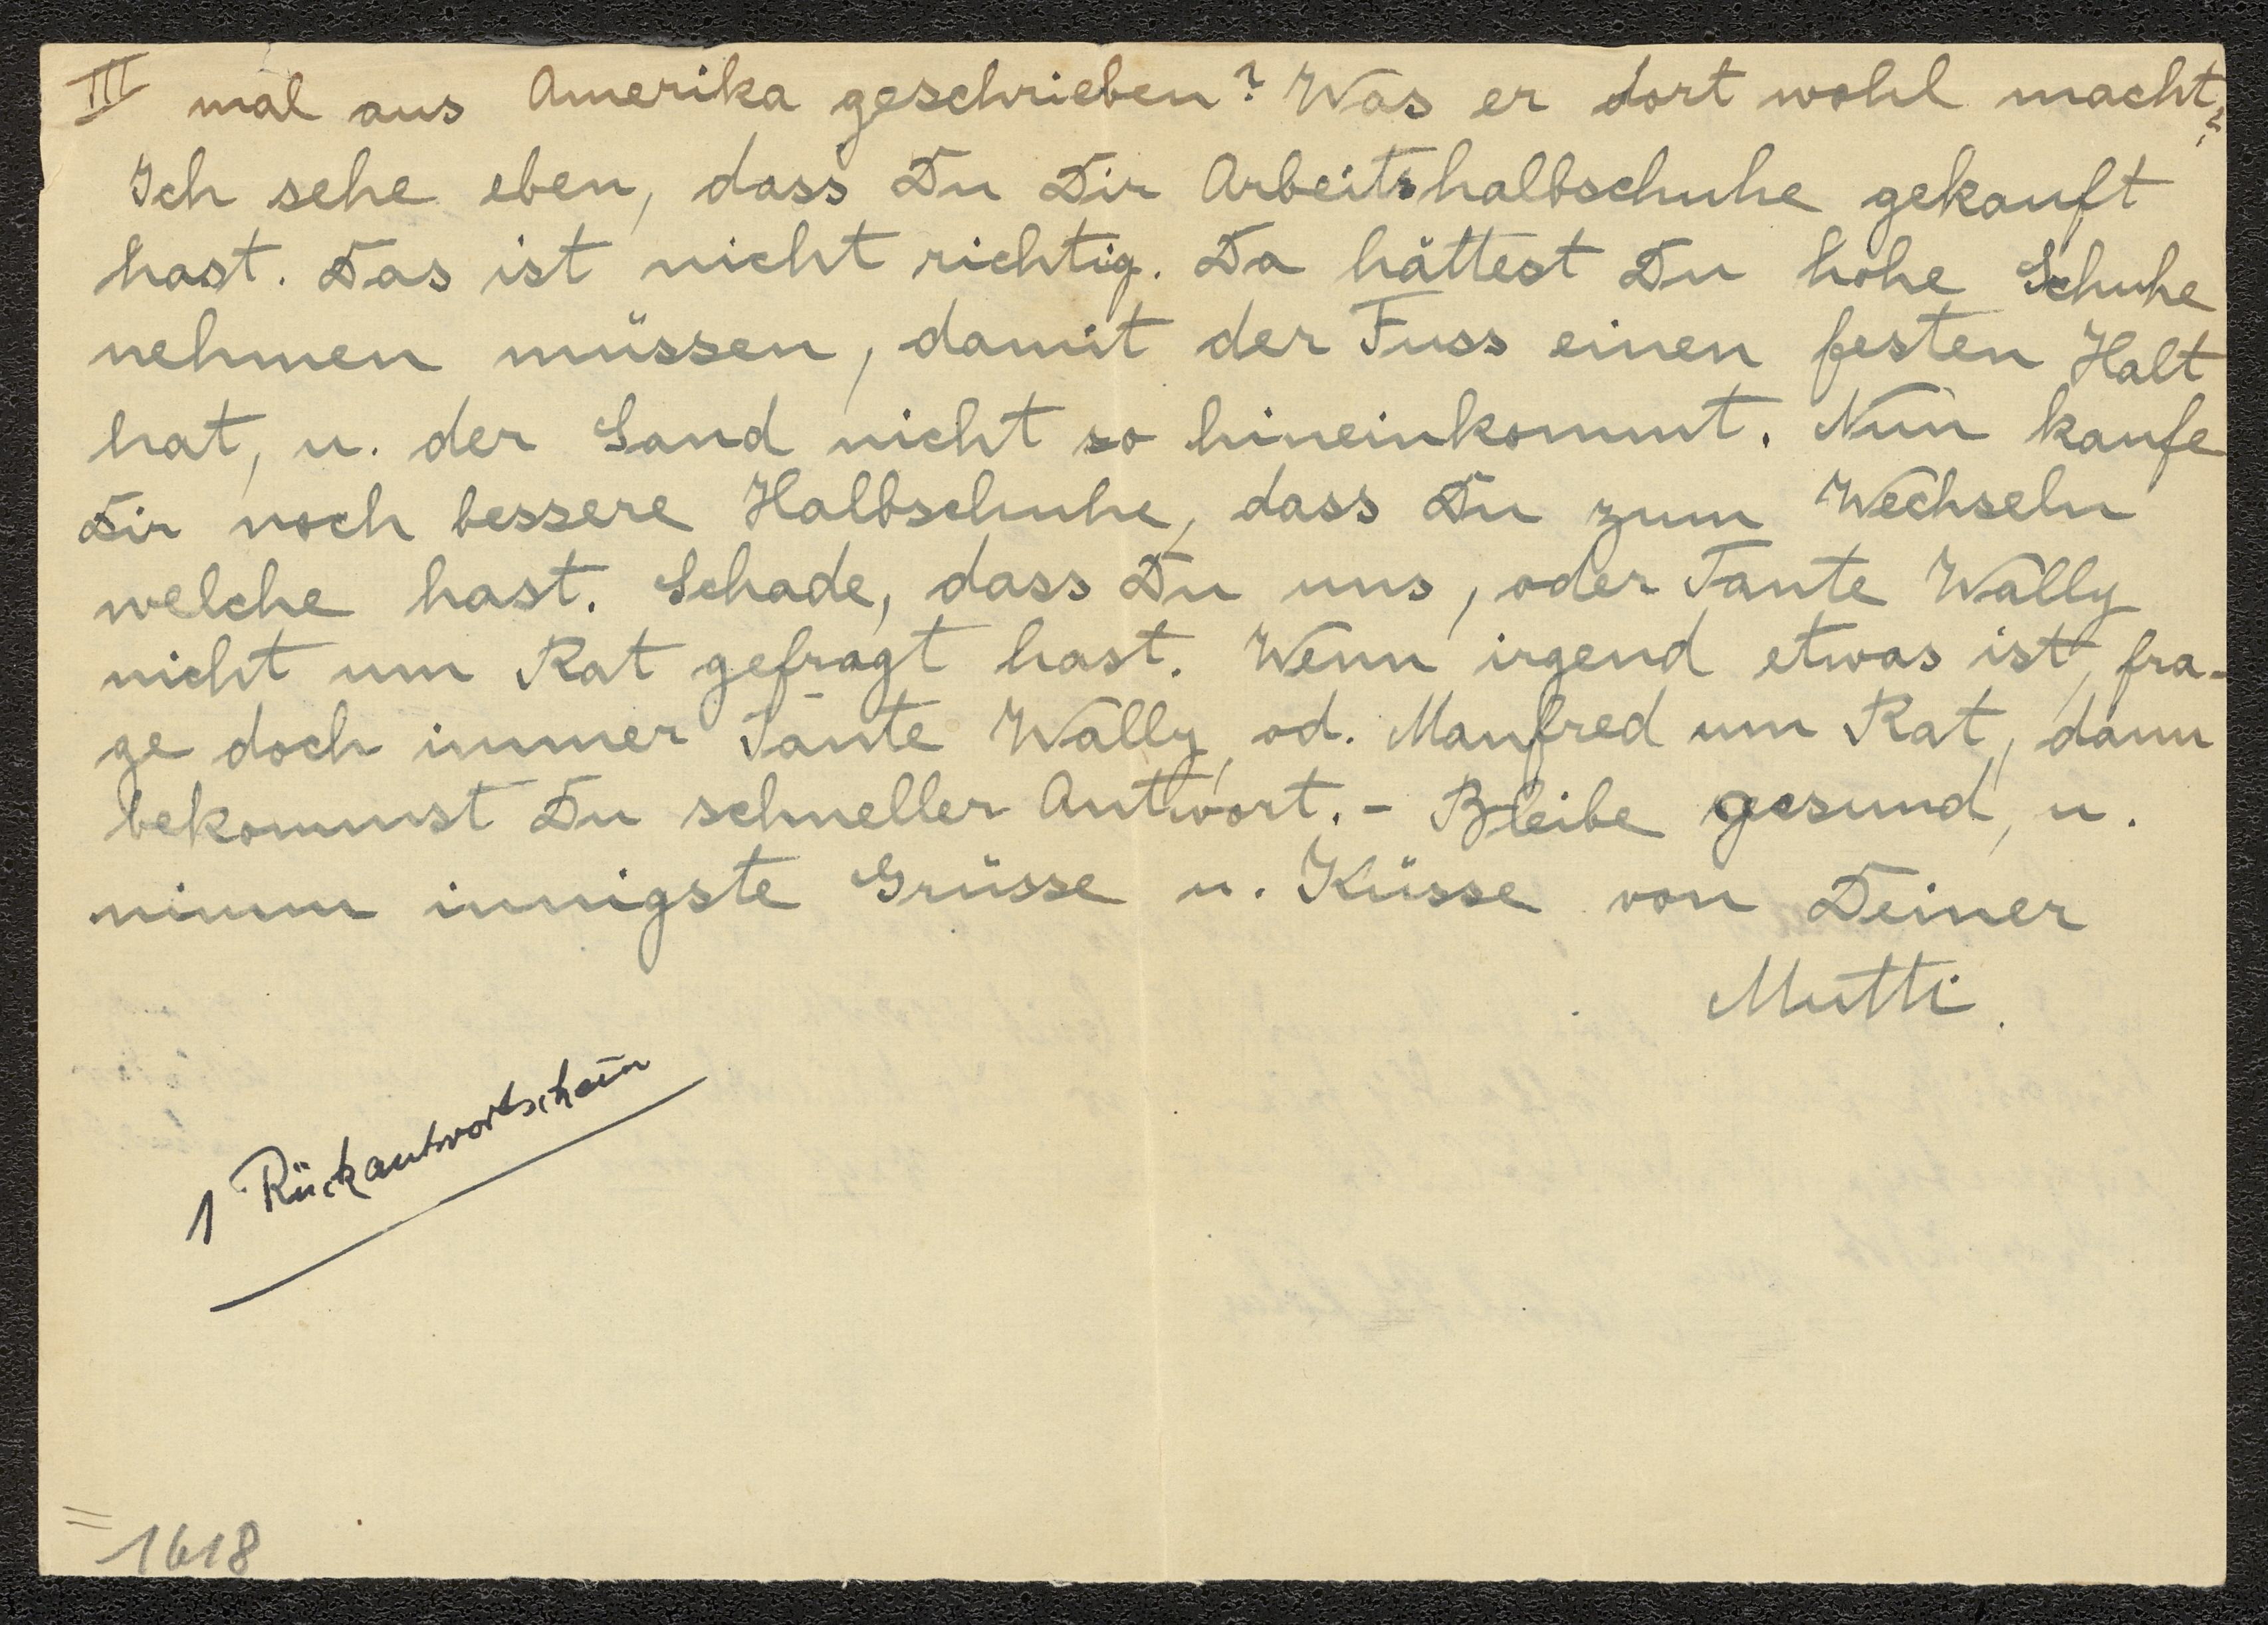 III mal aus Amerika geschrieben? Was er dort wohl macht?
Ich sehe eben, dass Du Dir Arbeitshalbschuhe gekauft
hast. Das ist nicht richtig. Da hättest Du hohe Schuhe
nehmen müssen, damit der Fuss einen festen Halt
hat, u. der Sand nicht so hineinkommt. Nun kaufe
Dir noch bessere Halbschuhe, dass Du zum Wechseln
welche hast. Schade, dass Du uns, oder Tante Wally
nicht um Rat gefragt hast. Wenn irgend etwas ist, fra-
ge doch immer Tante Wally, od. Manfred um Rat, dann
bekommst Du schneller Antwort. - Bleibe gesund, u.
nimm innigste Grüsse u. Küsse von Deiner
Mutti.
1 Rückantwortschein
1618